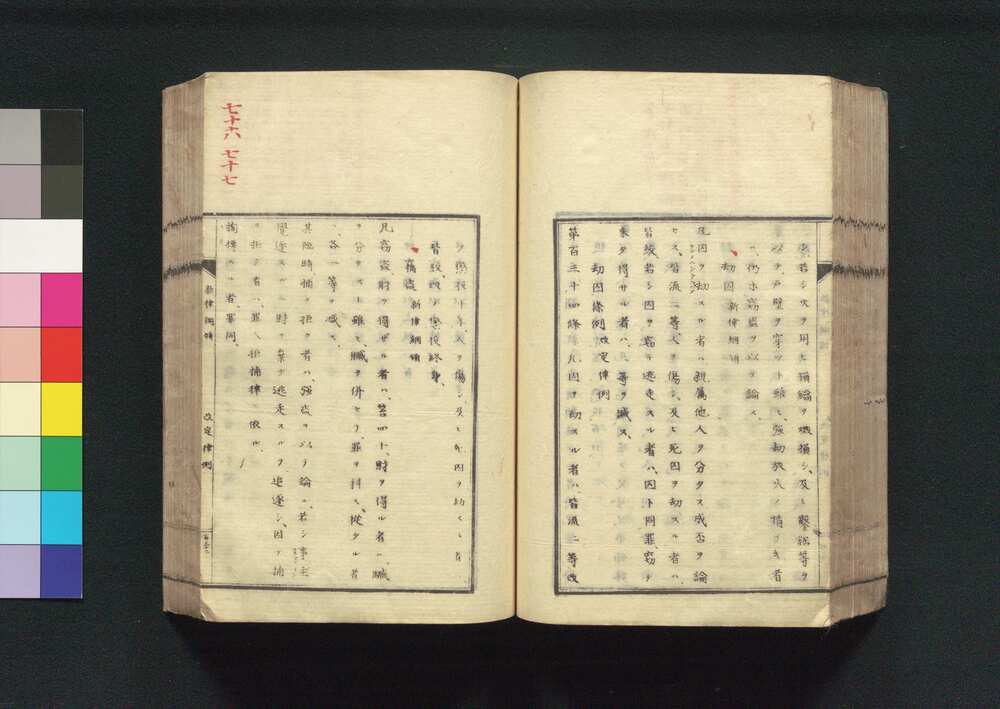 炭若シ火ヲ用ヒ損縮ヲ燬損シ、及ヒ鑿鋸等ヲ
以テ戸壁ヲ穿ツト雖モ、強劫放火ノ情ナキ者
ハ、仍ホ竊盗ヲ以テ論ス、
劫囚 新律綱領
凡囚ヲ劫スル者ハ親属他人ヲ分タス成否ヲ論
セス、皆流二等、人ヲ傷シ、及ヒ死囚ヲ劫スル者ハ、
皆絞、若シ囚ヲ竊ミ逃走スル者ハ、囚ト同罪竊テ
未タ得サル者ハ、二等ヲ減ス、
劫囚條例 改定律例
第百三十四條 凡囚ヲ劫スル者ハ、皆流二等改
七十六 七十七
ヲ懲役十年、人ヲ傷シ、及ヒ死囚ヲ劫スル者
皆絞、改テ懲役終身、
竊盗 新律綱領
凡竊盗、財ヲ得ザル者ハ、笞四十、財ヲ得ル者ハ、贓
ヲ分タスト雖モ、贓ヲ併セテ、罪ヲ科ス、從タル者
ハ、各一等ヲ減ス、
其臨時、捕ヲ拒ク者ハ、強盗ヲ以テ論ス、若シ事主
覺逐スルノ時ヲ棄テ逃走スルヲ追逐シ、因テ捕
ヲ拒ク者ハ、罪人拒捕律ニ依ル、
掏摸スル者、罪同、
新律綱領
改定律例